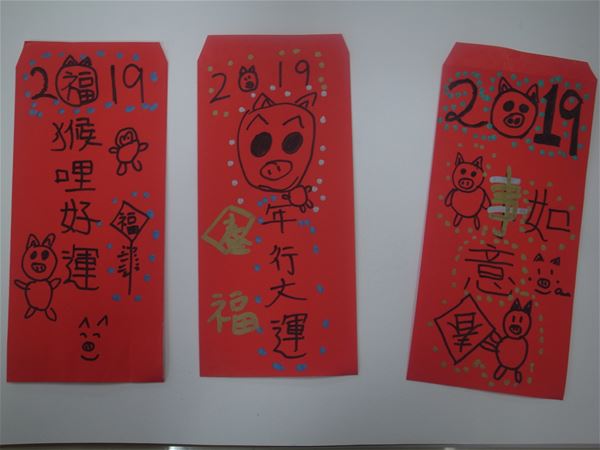 2福19
猴哩好運
福
2019
年行大運
福
2019
事如
意
春